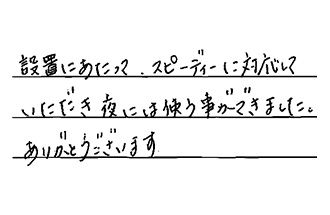 設置にあたって、スピーディーに対応して
いただき夜には使う事ができました。
ありがとうございます